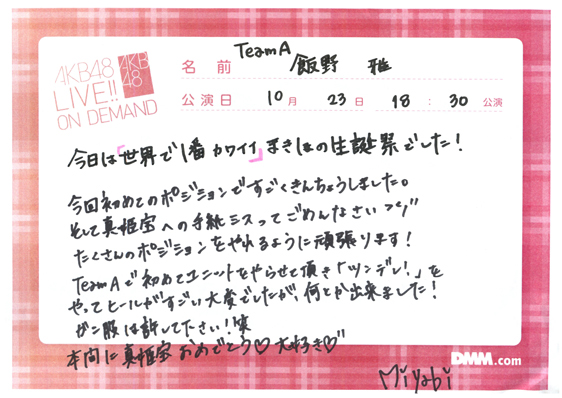 AKB48
LIVE!!
ON DEMAND
AKB
48
名 前 TeamA 飯野 雅
公演日 10月 23日 18:30 公演
今日は「世界で1番カワイイ」まきほの生誕祭でした!
今回初めてのポジションですごくきんちょうしました。
そして真姫宝への手紙ミスってごめんなさい
たくさんのポジションをやれるように頑張ります!
TeamAで初めてユニットをやらせて頂き「ツンデレ!」を
やってヒールがすごい大変でしたが、何とか出来ました!
がに服は許して下さい!笑
本間に真姫宝おめでとう♡大好き♡
DMM.com
Miyabi